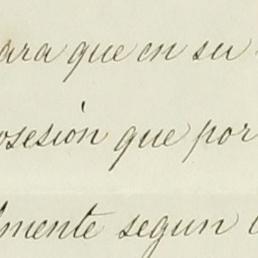 ara que en su
osesión que por
lmente segun